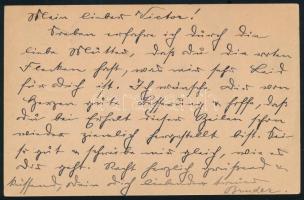 Mein lieber Victor!
Soeben erfahre ich durch die
liebe Mutter, daß du die roten
Flecken hast, was mir sehr Leid
für dich ist. Ich wünsche Dir von
Herzen gute Besserung u. hoffe, daß
du bei Erhalt dieser Zeilen schon
wieder ziemlich hergestellt bist. Sei
so gut u. schreibe mir gleich, wie es
Dir geht. Recht herzlich grüßend u.
küssend, dein dich liebender
Bruder.